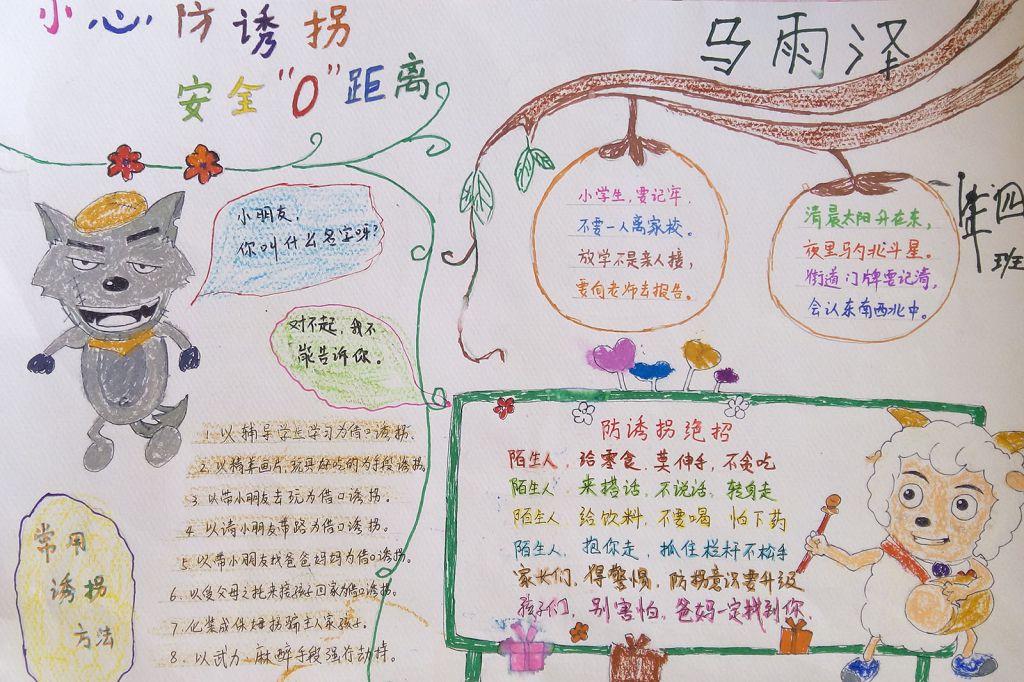 小心防诱拐
安全“0”距离
马雨泽
四
班
小朋友，
你叫什么名字呀？
对不起，我不
能告诉你。
小学生，要记牢，
不要一人离家校。
放学不是亲人接，
要向老师去报告。
清晨太阳升在东，
夜里马勺北斗星。
街道门牌要记清，
会认东南西北中。
常用
诱拐
方法
1. 以辅导学生学习为借口诱拐.
2. 以精美画片,玩具好吃的为手段诱拐.
3. 以带小朋友去玩为借口诱拐.
4. 以请小朋友带路为借口诱拐.
5. 以带小朋友找爸爸妈妈为借口诱拐.
6. 以受父母之托来接孩子回家为借口诱拐.
7. 化装成保姆拐骗主人家孩子.
8. 以武力 麻醉手段强行劫持.
防诱拐绝招
陌生人，给零食，莫伸手，不贪吃
陌生人，来搭话，不说话，转身走
陌生人 给饮料，不要喝 怕下药
陌生人，抱你走，抓住栏杆不松手
家长们，得警惕，防拐意识要升级
孩子们，别害怕，爸妈一定找到你